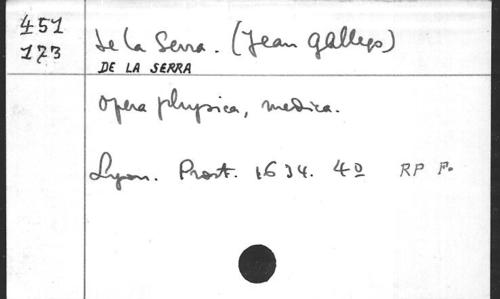 451
173
de la Serra. (Jean gallego)
DE LA SERRA
opera physica, medica.
Lyon. Prost. 1634. 4º RP F.